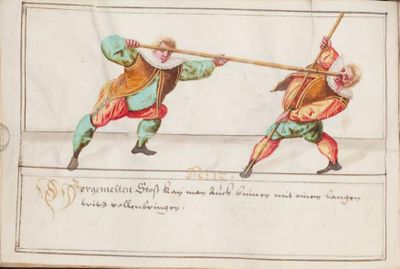 Vorgemelten Stoß kan man Auch mit einen langen
tritt vollenbringen.